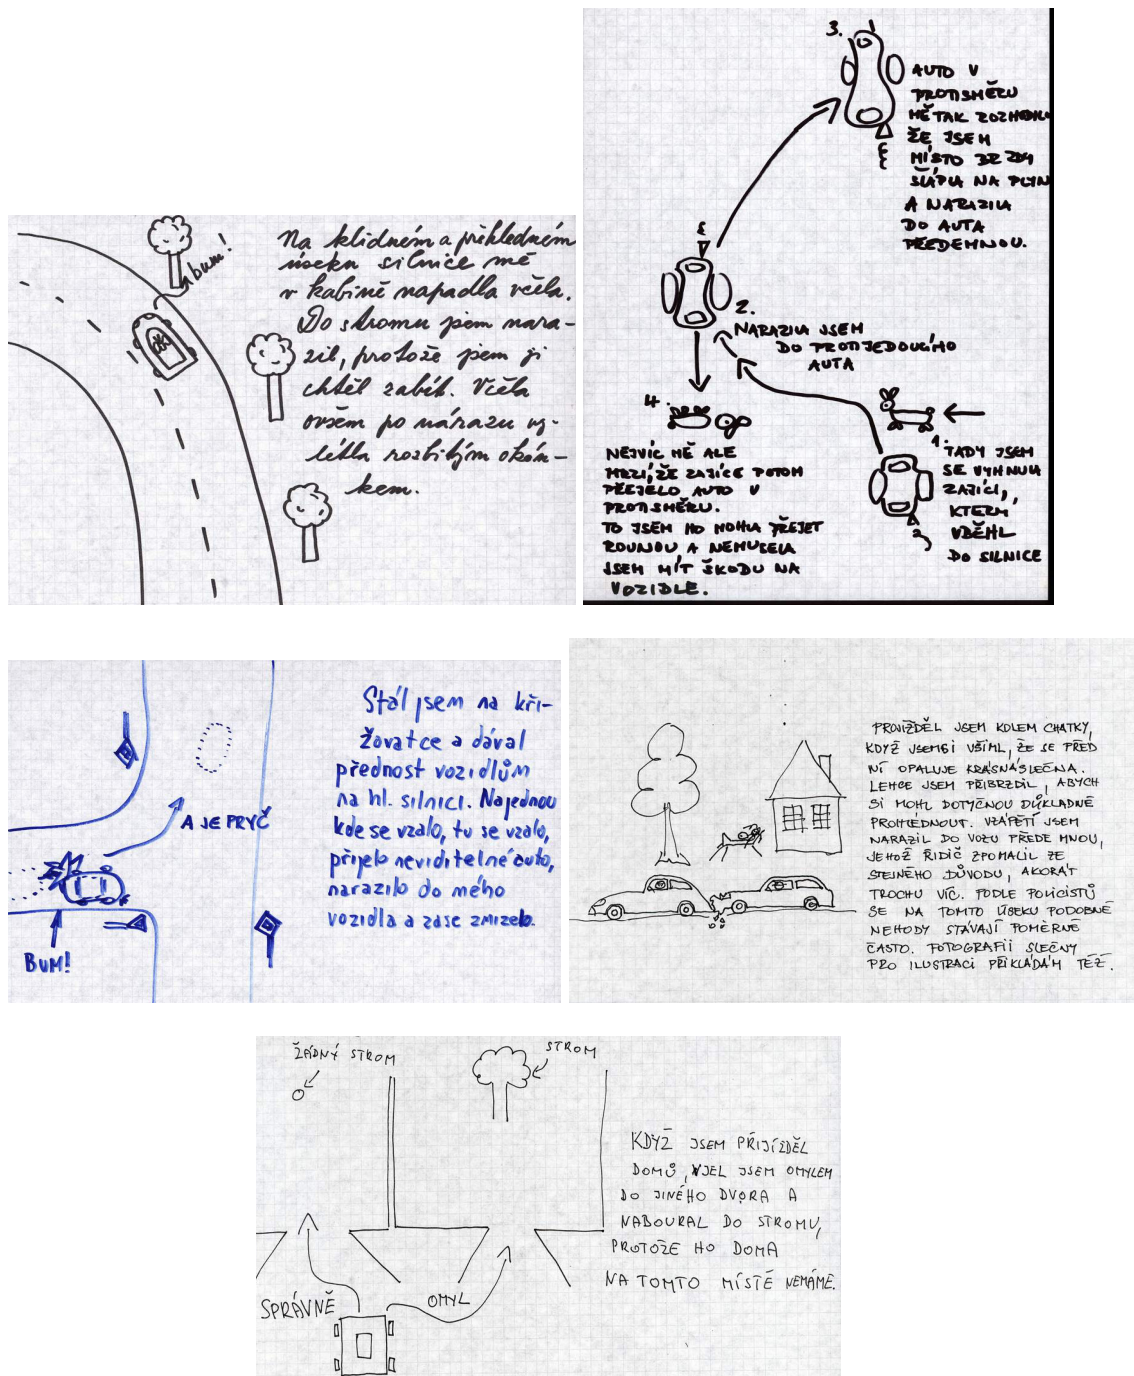 bum!
Na klidném a přehledném
úseku silnice mě
v kabině napadla včela.
Do stromu jsem nara-
zil, protože jsem ji
chtěl zabít. Včela
ovšem po nárazu vy-
létla rozbitým okén-
kem.
3.
AUTO V
PROTISMĚRU
MĚ TAK ROZHODILO
ŽE JSEM
MÍSTO BRZDY
ŠLÁPLA NA PLYN
A NARAZILA
DO AUTA
PŘEDEMNOU.
2.
NARAZILA JSEM
DO PROTIJEDOUCÍHO
AUTA
4.
NEJVÍC MĚ ALE
MRZÍ, ŽE ZAJÍCE POTOM
PŘEJELO AUTO V
PROTISMĚRU.
TO JSEM HO MOHLA PŘEJET
ROVNOU A NEMUSELA
JSEM MÍT ŠKODU NA
VOZIDLE.
1.
TADY JSEM
SE VYHNULA
ZAJÍCI,
KTERÝ
VBĚHL
DO SILNICE
Stál jsem na kři-
žovatce a dával
přednost vozidlům
na hl. silnici. Najednou
kde se vzalo, tu se vzalo,
přijelo neviditelné auto,
narazilo do mého
vozidla a zase zmizelo.
A JE PRYČ
BUM!
PROJÍŽDĚL JSEM KOLEM CHATKY,
KDYŽ JSEM SI VŠIML, ŽE SE PŘED
NÍ OPALUJE KRÁSNÁ SLEČNA.
LEHCE JSEM PŘIBRZDIL, ABYCH
SI MOHL DOTYČNOU DŮKLADNĚ
PROHLÉDNOUT. VZÁPĚTÍ JSEM
NARAZIL DO VOZU PŘEDE MNOU,
JEHOŽ ŘIDIČ ZPOMALIL ZE
STEJNÉHO DŮVODU, AKORÁT
TROCHU VÍC. PODLE POLICISTŮ
SE NA TOMTO ÚSEKU PODOBNÉ
NEHODY STÁVAJÍ POMĚRNĚ
ČASTO. FOTOGRAFII SLEČNY
PRO ILUSTRACI PŘIKLÁDÁM TÉŽ.
ŽÁDNÝ STROM
STROM
KDYŽ JSEM PŘIJÍŽDĚL
DOMŮ, VJEL JSEM OMYLEM
DO JINÉHO DVORA A
NABOURAL DO STROMU,
PROTOŽE HO DOMA
NA TOMTO MÍSTĚ NEMÁME.
SPRÁVNĚ
OMYL